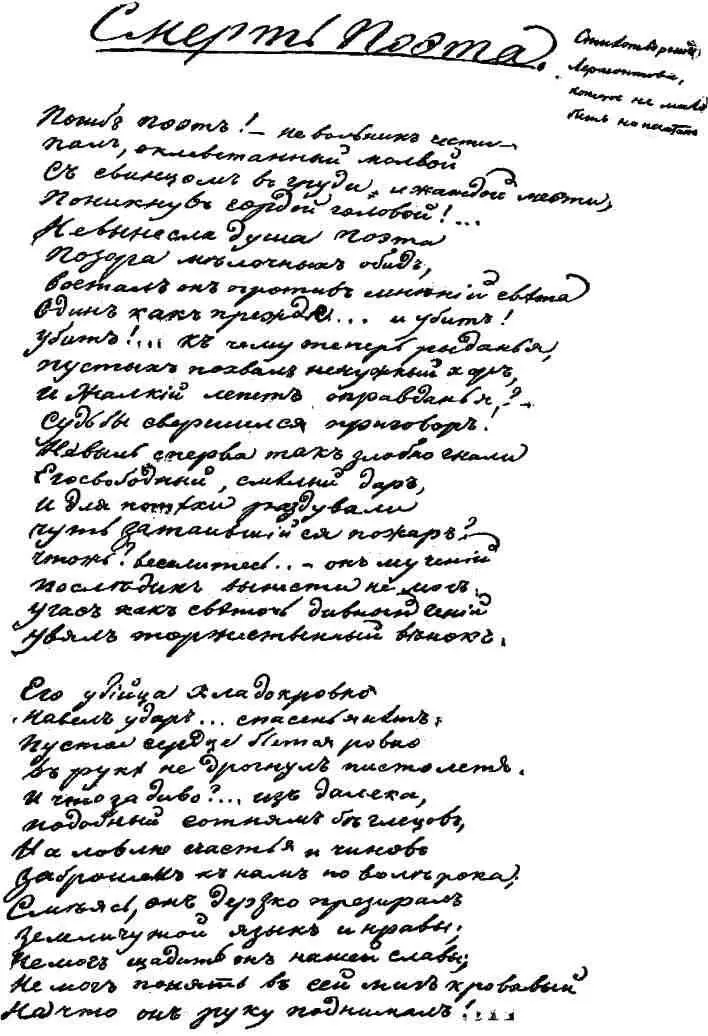 Смерть Поэта.
Стихотворенiе
Лермонтова,
которое не можетъ
быть напечатано
Погибъ поэтъ! – невольникъ чести –
палъ, оклеветанный молвой
Съ свинцомъ въ груди, и жаждой мести,
Поникнувъ гордой головой!...
Невынесла душа поэта
Позора мѣлочныхъ обидъ,
возсталъ онъ противъ мнѣнiй свѣта
Одинъ какъ прежде... и убитъ!
убитъ!... къ чему теперь рыданья,
пустыхъ похвалъ ненужный хоръ,
и жалкiй лепетъ оправданья?–
Судьбы свершился приговоръ!
Невыль сперва такъ злобно гнали
Его свободный, смѣлый даръ,
и для потѣхи раздували
чуть затаившiйся пожаръ?–
чтожъ? веселитесь.. – онъ мученiй
послѣднихъ вынести не могъ.
угасъ какъ свѣточь дивный генiй
увялъ торжественный вѣнокъ.
Его убiйца хладокровно
Навелъ ударъ... спасенья нѣтъ.
пустое сердце бьется ровно
въ рукѣ не дрогнулъ пистолетъ.
И что за диво?... изъ далека,
подобный сотнямъ бѣглецовъ,
На ловлю счастья и чиновъ
Заброшенъ къ намъ по волѣ рока;
Смѣясь, онъ дерзко презиралъ
Земли чужой языкъ и нравы;
Не могъ щадить онъ нашей славы;
Не могъ понять въ сей мигъ кровавый
На что онъ руку поднималъ!...